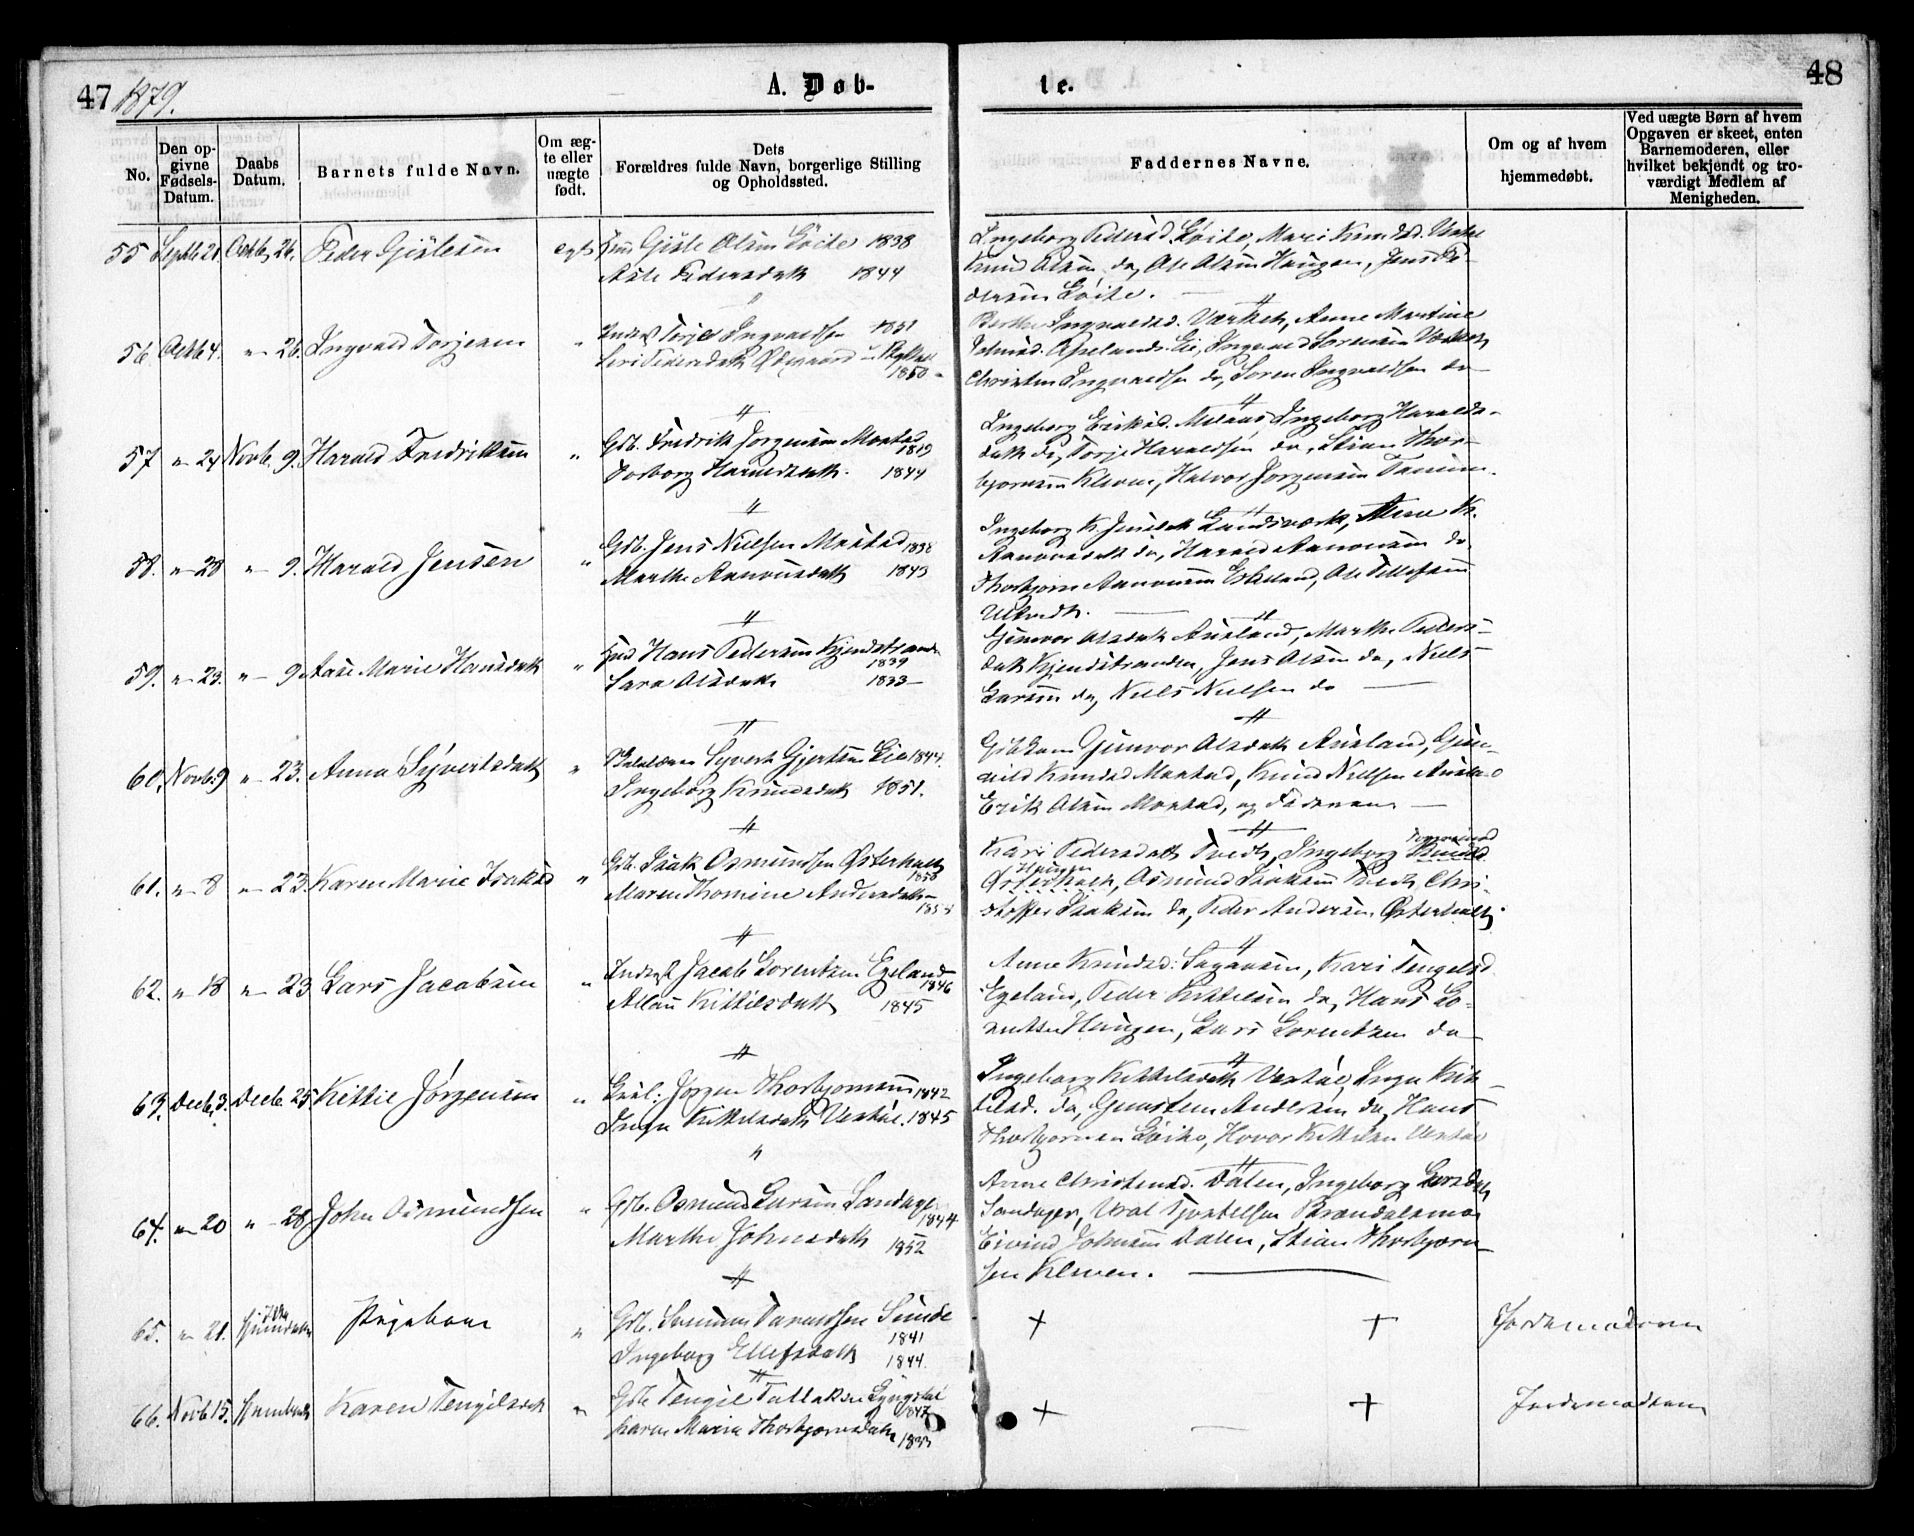 47 1879.
A. Døb-
te.
48
No.
Den op-
givne
Fødsels-
Datum.
Daabs
Datum.
Barnets fulde Navn.
Om æg-
te eller
uægte
født.
Dets
Forældres fulde Navn, borgerlige Stilling
og Opholdssted.
Faddernes Navne.
Om og af hvem
hjemmedøbt.
Ved uægte Børn af hvem
Opgaven er skeet, enten
Barnemoderen, eller
hvilket bekjendt og tro-
værdigt Medlem af
Menigheden.
55 Septb 21. Octb 26. Peder Gislesen egte Gisle Olsen Löite 1838
Aste Pedersdatt 1844
Ingeborg Pedersd. Löite, Mari Knudsd.
Knud Olsen do, Ole Olsen Haugen, Jens Pe-
dersen Löite.
56 Octb 4. " 26. Ingvald Torjesen " Inderst Torje Ingvaldsen 1851
Siri Pedersdatt Ødegaard 1850
Berthe Ingvaldsd. Værket, Anne Martine
Apelands Eie, Ingvald Sorensen Værket
Christen Ingvaldsen do, Soren Ingvaldsen do
57 " 24 Novb. 9. Harald Fredriksen " Gdb. Fredrik Jørgensen Mostad 1819
Torborg Haraldsdatt. 1844
Ingeborg Eriksd. Melaas Ingeborg Haralds-
datt do, Torje Haraldsén do, Stian Thor-
bjornsen Kleven, Halvor Jorgensen
58. " 28 " 9. Harald Jensen " Gdb. Jens Nielsen Mostad 1838
Marthe Aanonsdatt 1843
Ingeborg K. Jensdatt Landsværk, K.
Aanonsdatt do, Harald Aanonsen do
Thorbjorn Aanonsen Eskeland, Ole Tellefsen
Ulltvedt.
59. " 23. " 9 Aase Marie Hansdatt " Hans Pedersen Kjendstranden 1839
Sara Olsdatt 1833
Gunvor Olsdatt Ausland, Marthe Peders-
datt Kjendstranden, Jens Olsen do, Niels
Larsen do, Niels Nielsen do
60. Novb. 9 " 23. Anna Syvertsdatt " Syvert Gjertsen Eie 1844.
Ingeborg Knudsdatt 1851.
Gunvor Olsdatt Ausland, Gun-
vild Knudsd Mostad, Knud Nielsen Ausland
Erik Olsen Mostad, og Faderen
61. " 8 " 23. Karen Marie Isaksd " Gdb. Isak Osmundsen Østerholt 1850
Maren Thomine Andersdatt
Kari Pedersdatt Tvedt, Ingeborg
Haugen
Østerholt, Osmund Isaksen Tvedt, Chri-
stoffer Isaksen do, Peder Andersen Østerholt.
62. " 18 " 23 Lars Jacobsen " Inderst Jacob Lorentsen Egeland 1846
Kittilsdatt 1845
Anne Knudsd. Songaasen, Kari Tengelsd
Egeland, Peder Kittelsen do, Hans Lo-
rentsen Haugen, Lars Lorentzen do
63. Decb. 3. Decb. 25 Kittil Jörgensen " Jörgen Thorbjornsen 1842
Inga Kittelsdatt Vestöl. 1845
Ingeborg Kittelsdatt Vestöl, Inga Kit-
telsd. do, Gunsten Andersen do, Hans
Thorbjornsen Löite, Hovor Kittilsen Vestöl
64. " 20 " 28 John Osmundsen " Gdb. Osmund Larsen Sandager 1844
Marthe Johnsdatt 1852
Anne Christensd. Dalen, Ingeborg Larsdatt
Sandager, Tjostelsen Brændalsmo
Eivind Johnsen Dalen, Stian Thorbjørn-
sen Kleven.
65. " 21. Pigebarn " Gdb. Tarandsen Sunde 1841
Ingeborg Ellefsdatt 1844.
+ + Jordemoderen
66. Novb 15. Karen Tengelsdatt " Gdb Tengel Tallaksen 1847
Karen Maria Thorbjornsdatt 1833
+ + Jordemoderen